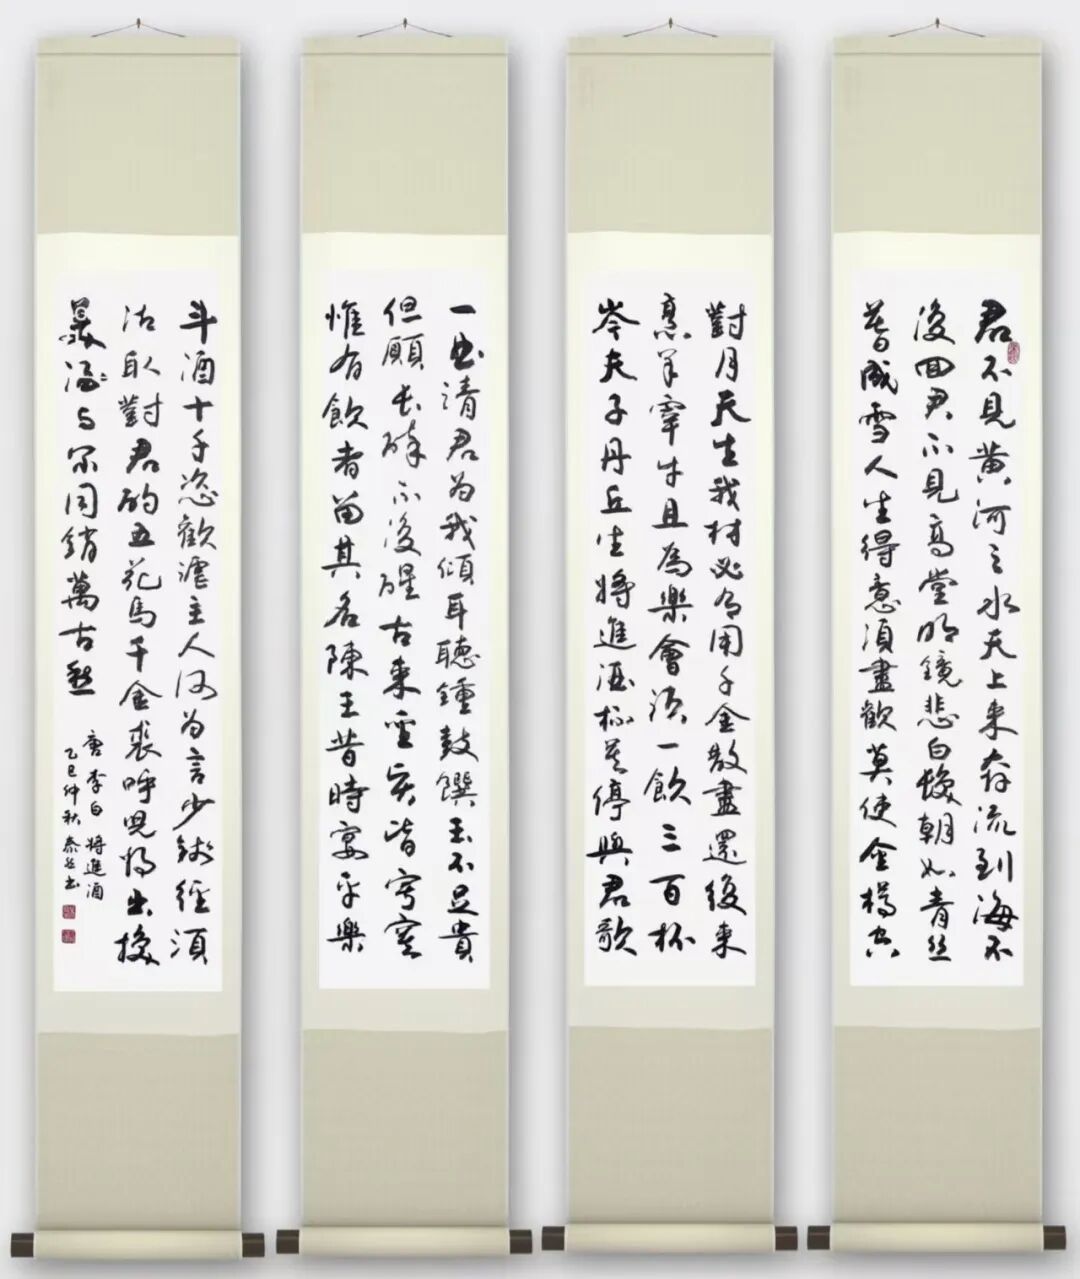 君不見黄河之水天上来奔流到海不
復回君不見高堂明鏡悲白髮朝如青丝
暮成雪人生得意須盡歡莫使金樽空
對月天生我材必有用千金散盡還復来
烹羊宰牛且為樂會須一飲三百杯
岑夫子丹丘生将進酒杯莫停與君歌
一曲請君为我傾耳聽鍾鼓饌玉不足貴
但願长醉不復醒古来聖賢皆寂寞
惟有飲者留其名陳王昔時宴平樂
斗酒十千恣歡謔主人何为言少錢徑須
沽取對君酌五花馬千金裘呼児将出換
美酒与尔同銷萬古愁
唐李白将進酒
乙巳仲秋泰然书